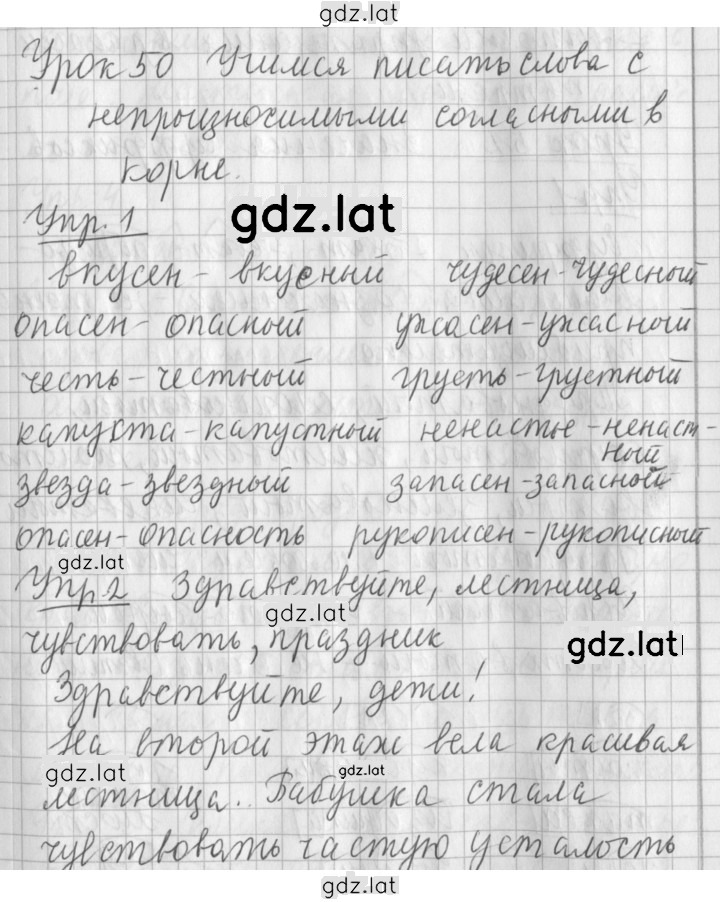 gdz.lat
Урок 50 Учимся писать слова с
непроизносимыми согласными в
корне.
Упр. 1 gdz.lat
вкусен - вкусный чудесен - чудесный
опасен - опасный ужасен - ужасный
честь - честный грусть - грустный
капуста - капустный ненастье - ненаст-
ный
звезда - звездный запасен - запасной
опасен - опасность рукописен - рукописный
gdz.lat
Упр 2 Здравствуйте, лестница,
gdz.lat
чувствовать, праздник gdz.lat
Здравствуйте, дети!
На второй этаж вела красивая
gdz.lat gdz.lat
лестница. Бабушка стала
чувствовать частую усталость
gdz.lat